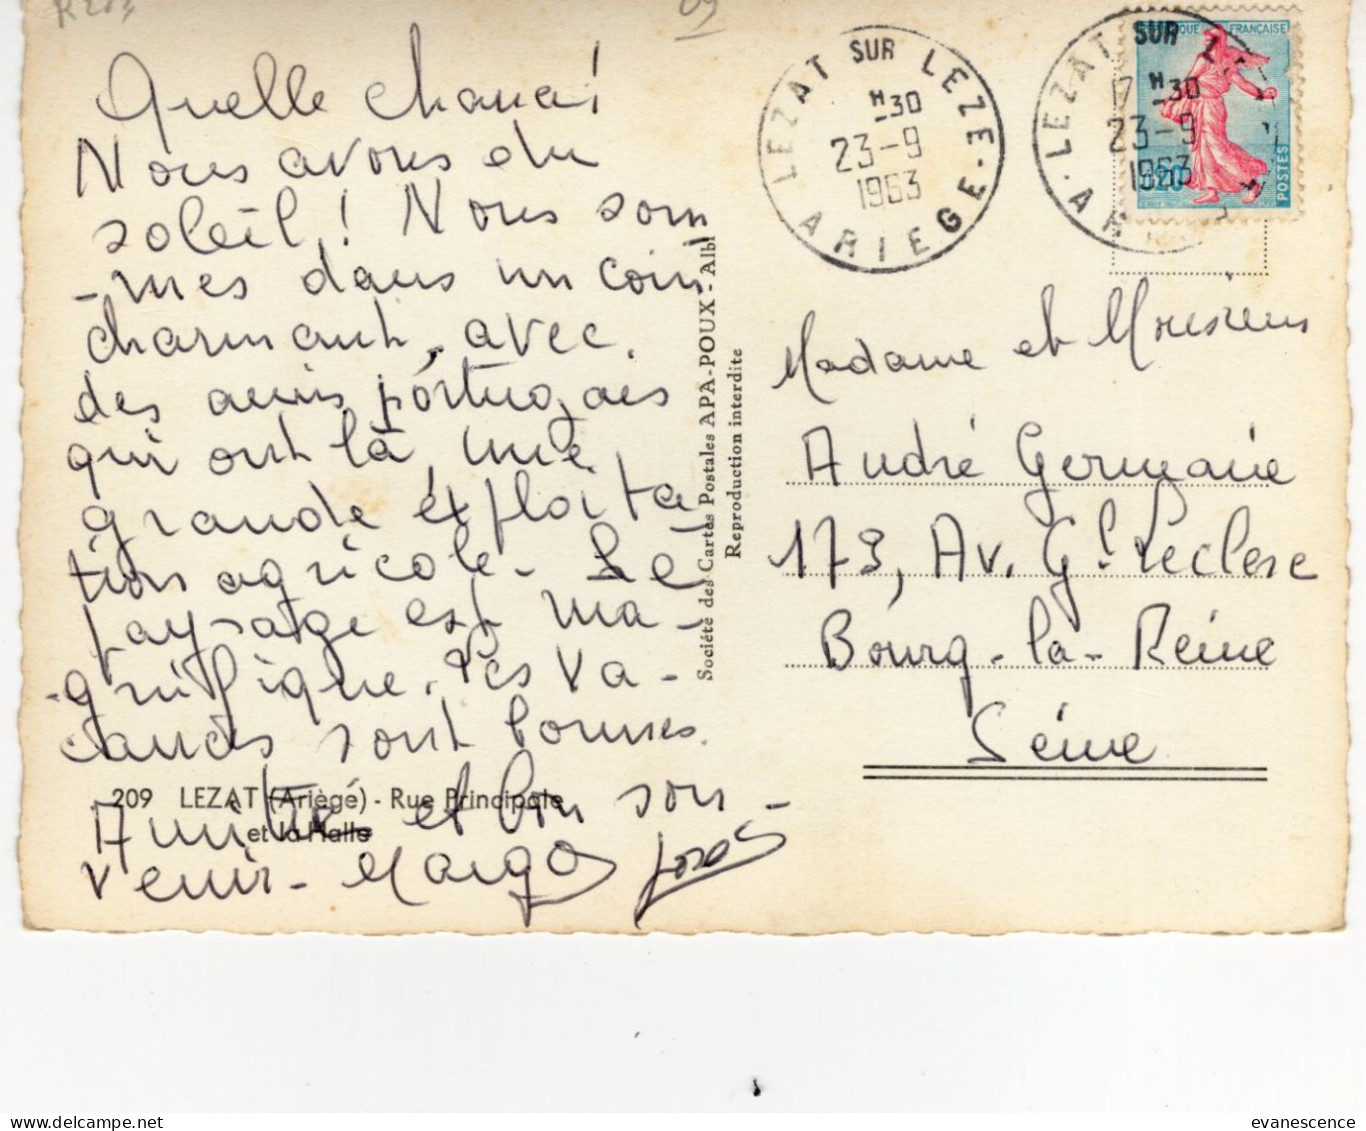 Quelle chance!
Nous avons du
soleil! Nous som
-mes dans un coin
charmant, avec
des amis portugais
qui ont là une
grande exploita-
tion agricole - Le
paysage est ma-
-gnifique. Les va-
cances sont bonnes.
209 LEZAT (Ariège) - Rue Principale
et la Halle
Amitiés et bon sou-
venir - Margo
Société des Cartes Postales APA-POUX - Albi
Reproduction interdite
LEZAT SUR LEZE
H -30
23-9
1963
ARIEGE
LEZAT SUR
17 H -30
23-9
1963
FRANÇAISE
POSTES
Madame et Monsieur
André Germaine
173, Av. Gl Leclerc
Bourg-la-Reine
Seine
evanescence